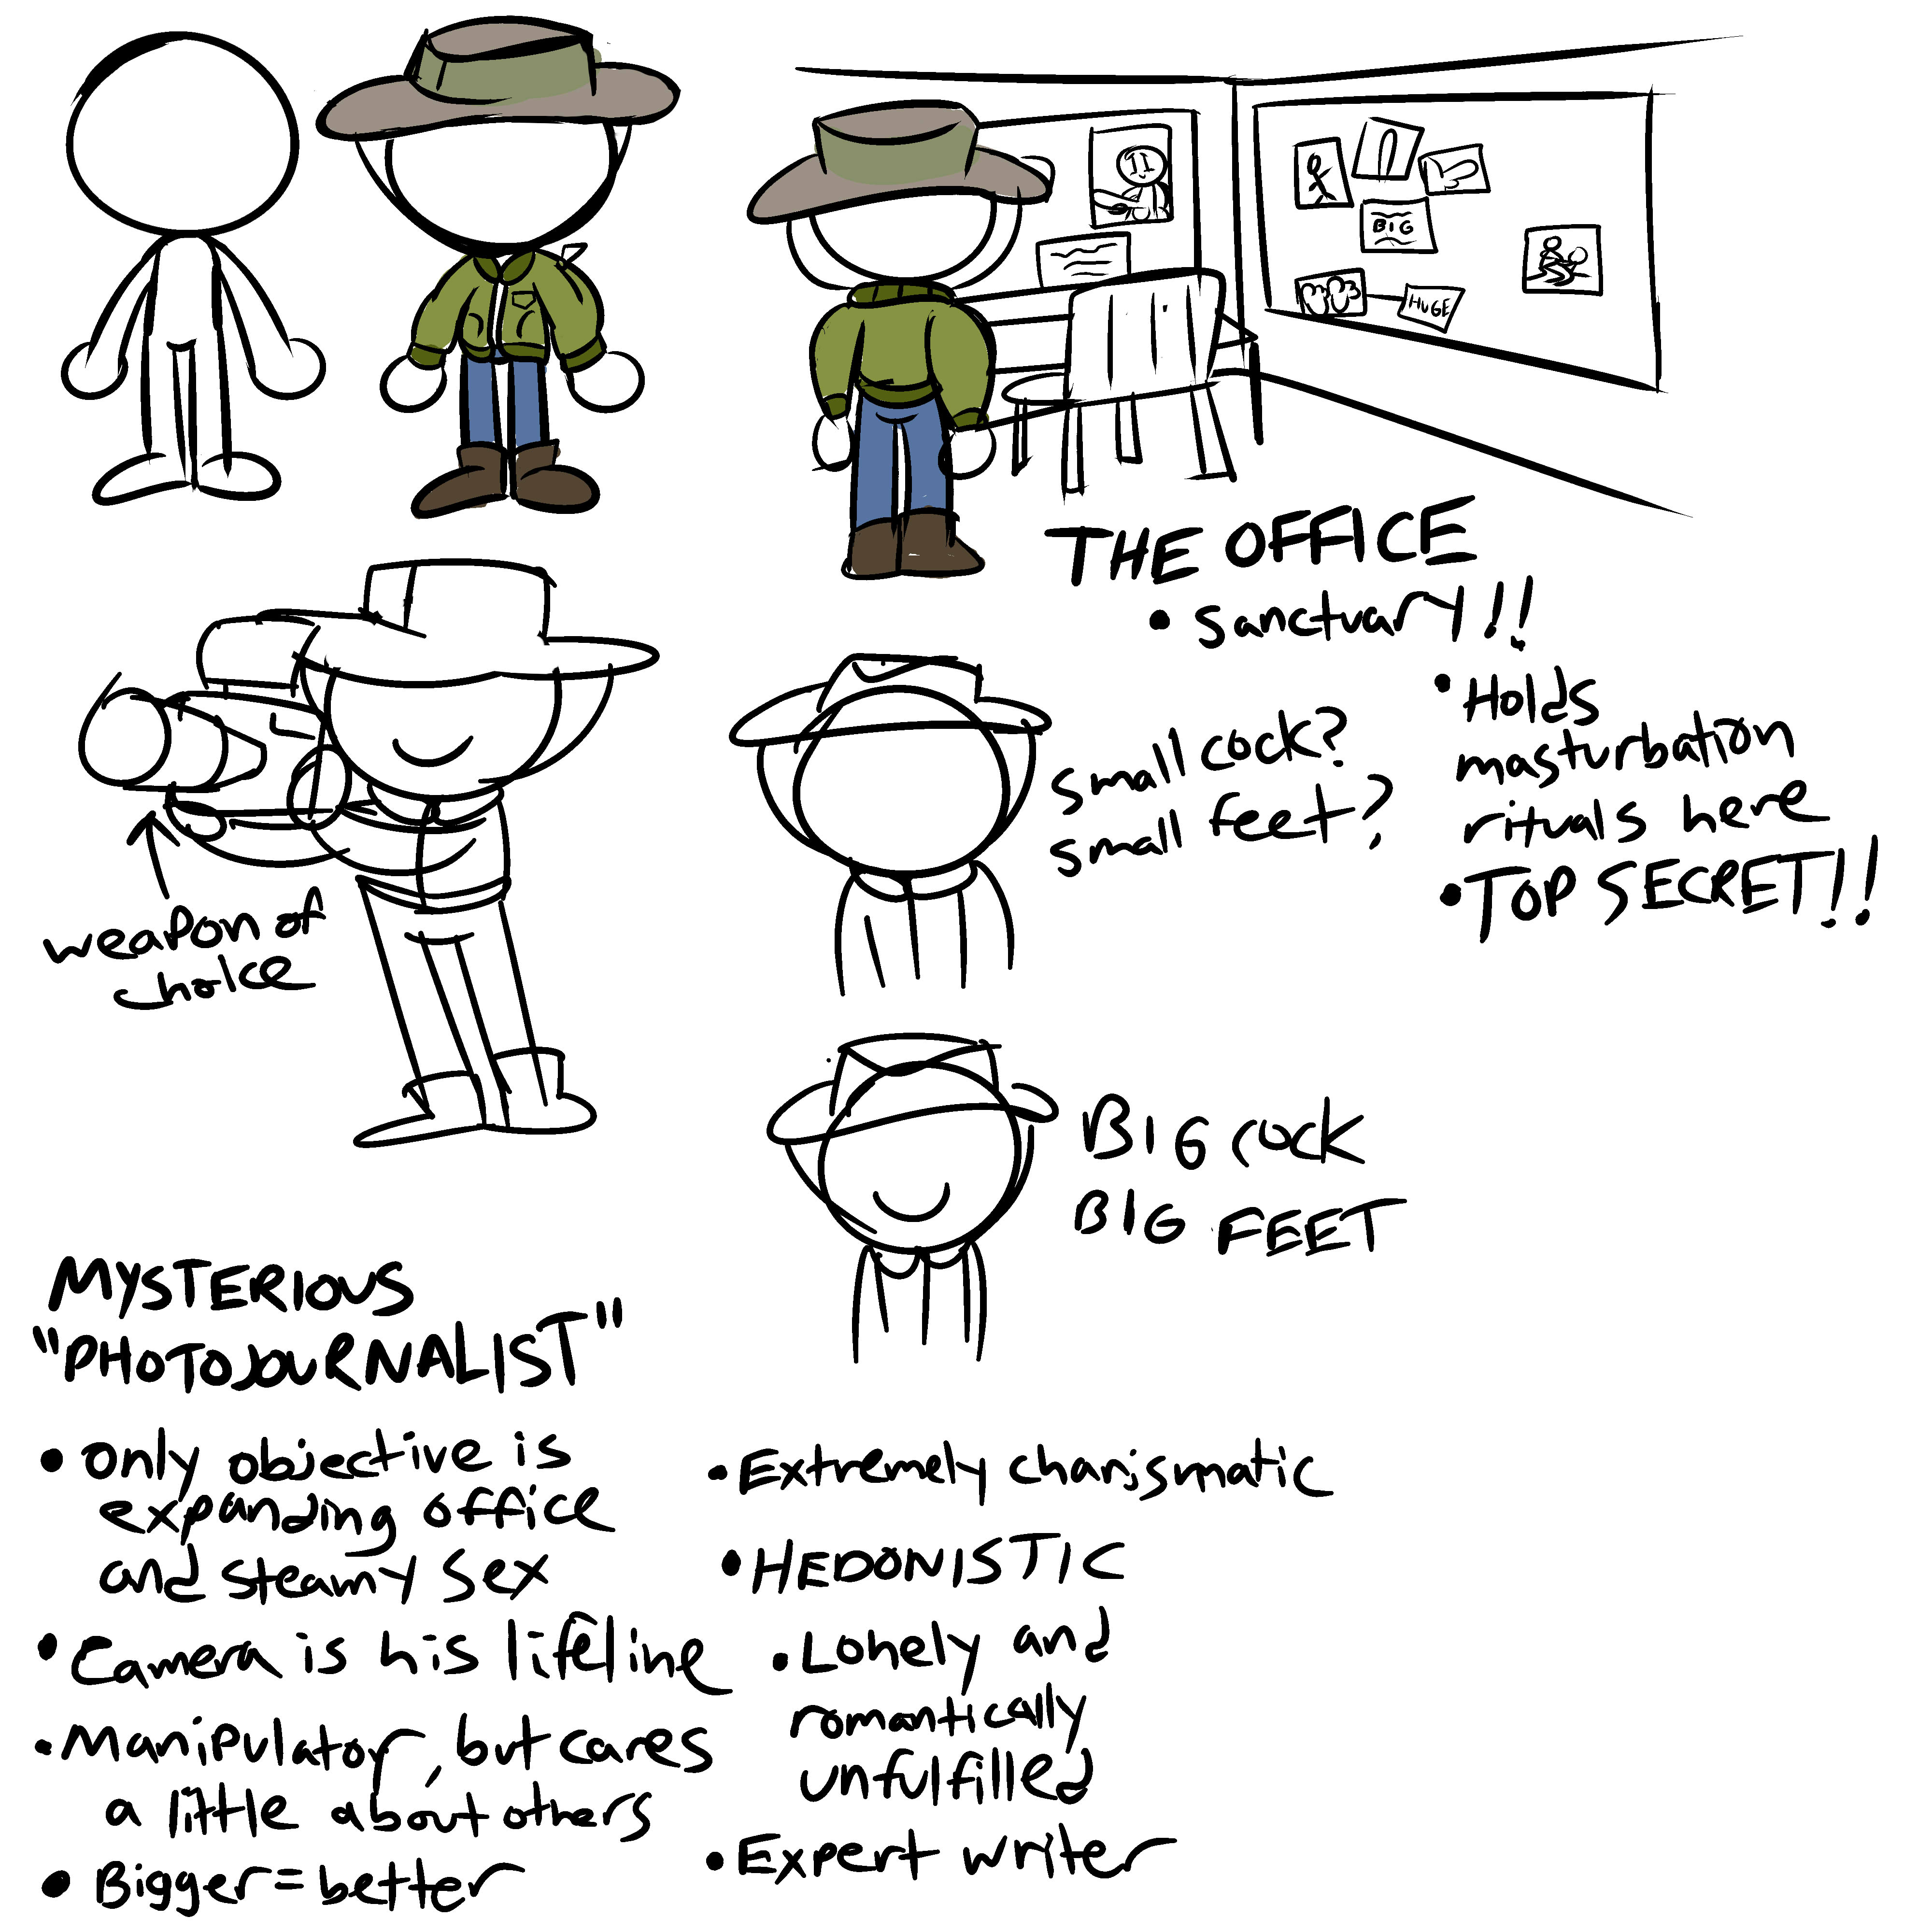 BIG
HUGE
THE OFFICE
• sanctuary!!
• Holds
masturbation
rituals here
• TOP SECRET!!
small cock?
small feet?
weapon of
choice
BIG cock
BIG FEET
MYSTERIOUS
"PHOTOJOURNALIST"
• only objective is
expanding office
and steamy sex
• Camera is his lifeline
• Manipulator, but cares
a little about others
• Bigger = better
• Extremely charismatic
• HEDONISTIC
• Lonely and
romantically
unfulfilled
• Expert writer